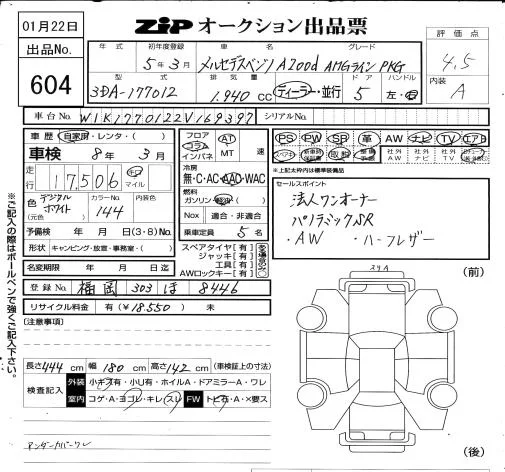 01月22日
ZIP オークション出品票
出品No.
604
年式 初年度登録 車名 グレード
5年3月 メルセデスベンツ A200d AMGライン PKG
型式 排気量 ドア ハンドル
3DA-177012 1,940 cc ディーラー・並行 5 左・右
評価点
4.5
内装
A
車台No. W1K1770122V169397 シリアルNo.
車歴 自家用・レンタ・( )
車検 8年 3月
走行 17,506 km マイル
色 (元色) デジタルホワイト カラーNo. 144 内装色
予備検 年 月 日 (3・8)No.
形状 キャンピング・放宣・事務室・( )
名変期限 年 月 日迄
フロア コラム インパネ AT MT 速
冷房 無・C・AC・AAC・WAC
燃料 ガソリン・軽油( )
Nox 適合・非適合
乗車定員 5 名
スペアタイヤ【有】
ジャッキ【有】
工具【有】
AWロックキー【有】
PS PW SR 革 AW ナビ TV エアB
社外AW 社外ナビ 社外TV
*上記太枠内は標準装備品
セールスポイント
法人ワンオーナー
パノラミックSR
・AW ・ハーフレザー
登録No. 福岡 303 ほ 8446
リサイクル料金 有(¥18,550) 未
[注意事項]
長さ 444 cm 幅 180 cm 高さ 142 cm (車検証上の寸法)
検査記入 外装 小キズ有・小U有・ホイルA・ドアミラーA・ワレ
室内 コゲ・A・ヨゴレ・キレ・スレ FW トビ石・A・X要ス
アンダーカバーワレ
スリA
(前)
(後)
※ご記入の際はボールペンで強くご記入下さい。